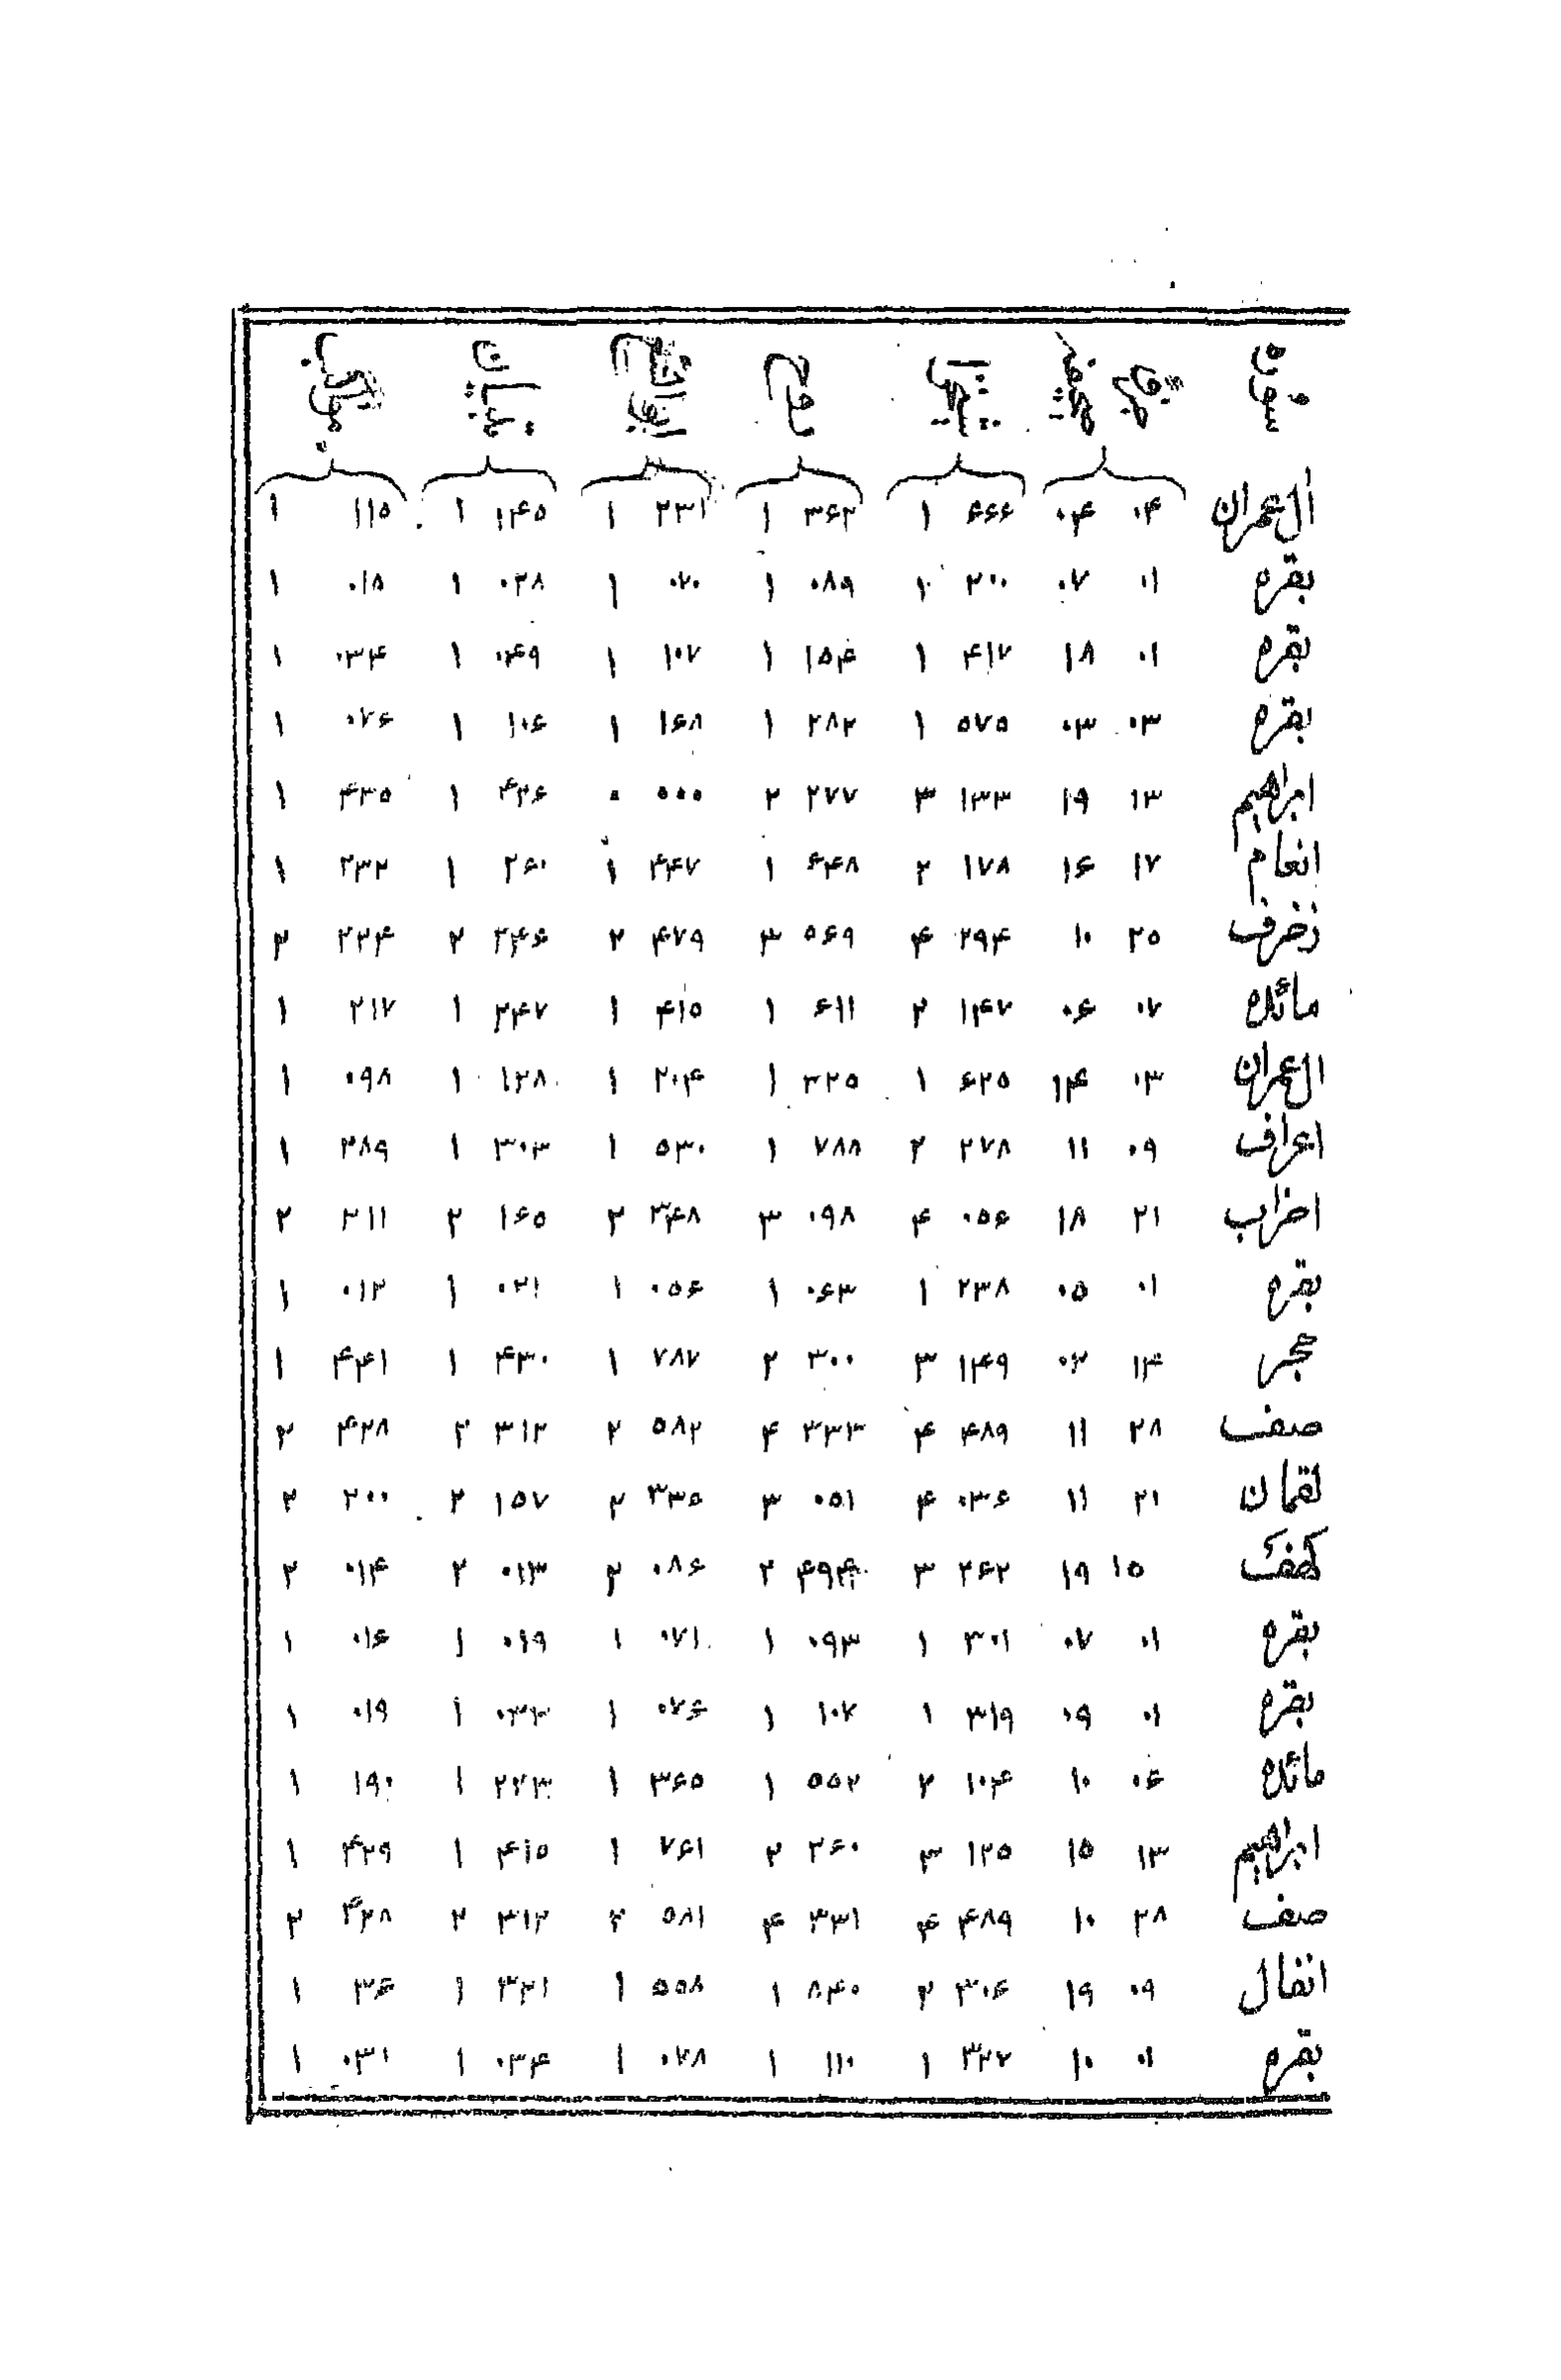 اٰل عمران ۰۴ ۰۴ ۶۶۶ ۱ ۳۶۲ ۱ ۲۳۱ ۱ ۱۴۵ ۱ ۱۱۵ ۱
بقره ۰۱ ۰۷ ۲۰۰ ۱ ۰۸۹ ۱ ۰۷۰ ۱ ۰۲۸ ۱ ۰۱۵ ۱
بقره ۰۱ ۱۸ ۴۱۷ ۱ ۱۵۴ ۱ ۱۰۷ ۱ ۰۴۹ ۱ ۰۳۴ ۱
بقره ۰۳ ۰۳ ۵۷۵ ۱ ۲۸۲ ۱ ۱۶۸ ۱ ۱۰۶ ۱ ۰۷۶ ۱
ابراهیم ۱۳ ۱۹ ۱۳۳ ۳ ۲۷۷ ۲ ۰۰۰ ۰ ۴۲۶ ۱ ۴۳۵ ۱
انعام ۱۷ ۱۶ ۱۷۸ ۲ ۶۴۸ ۱ ۴۴۷ ۱ ۲۶۰ ۱ ۲۳۲ ۱
زخرف ۲۵ ۱۰ ۲۹۴ ۴ ۵۶۹ ۳ ۴۷۹ ۲ ۲۴۶ ۲ ۲۲۴ ۲
مائده ۰۷ ۰۶ ۱۴۷ ۲ ۶۱۱ ۱ ۴۱۵ ۱ ۲۴۷ ۱ ۲۱۷ ۱
ال عمران ۰۳ ۱۴ ۶۲۵ ۱ ۳۲۵ ۱ ۲۰۴ ۱ ۱۲۸ ۱ ۰۹۸ ۱
اعراف ۰۹ ۱۱ ۲۷۸ ۲ ۷۸۸ ۱ ۵۳۰ ۱ ۳۰۳ ۱ ۲۸۹ ۱
احزاب ۲۱ ۱۸ ۰۵۶ ۴ ۰۹۸ ۳ ۳۴۸ ۲ ۱۶۵ ۲ ۲۱۱ ۲
بقره ۰۱ ۰۵ ۲۳۸ ۱ ۰۶۳ ۱ ۰۵۶ ۱ ۰۲۱ ۱ ۰۱۲ ۱
حجر ۱۴ ۰۲ ۱۴۹ ۳ ۳۰۰ ۲ ۷۸۷ ۱ ۴۳۰ ۱ ۴۴۱ ۱
صف ۲۸ ۱۱ ۴۸۹ ۴ ۳۳۳ ۴ ۵۸۲ ۲ ۳۱۲ ۲ ۴۲۸ ۲
لقمان ۲۱ ۱۱ ۰۳۶ ۴ ۰۵۱ ۳ ۳۳۵ ۲ ۱۵۷ ۲ ۲۰۰ ۲
کهف ۱۵ ۱۹ ۲۶۲ ۳ ۲ ۰۸۶ ۲ ۰۱۳ ۲ ۰۱۴ ۲
بقره ۰۱ ۰۷ ۳۰۱ ۱ ۰۹۳ ۱ ۰۷۱ ۱ ۰۱۹ ۱ ۰۱۶ ۱
بقره ۰۱ ۰۹ ۳۱۹ ۱ ۱۰۷ ۱ ۰۷۶ ۱ ۰۳۳ ۱ ۰۱۹ ۱
مائده ۰۶ ۱۰ ۱۰۴ ۲ ۵۵۲ ۱ ۳۶۵ ۱ ۲۲۳ ۱ ۱۹۰ ۱
ابراهیم ۱۳ ۱۵ ۱۲۵ ۳ ۲۶۰ ۲ ۷۶۱ ۱ ۴۱۵ ۱ ۴۲۹ ۱
صف ۲۸ ۱۰ ۴۸۹ ۴ ۳۳۱ ۴ ۵۸۱ ۲ ۳۱۲ ۲ ۴۲۸ ۲
انفال ۰۹ ۱۹ ۳۰۶ ۲ ۸۴۰ ۱ ۵۵۸ ۱ ۳۲۱ ۱ ۳۶ ۱
بقره ۰۱ ۱۰ ۳۲۷ ۱ ۱۱۰ ۱ ۰۷۸ ۱ ۰۳۴ ۱ ۰۳۱ ۱